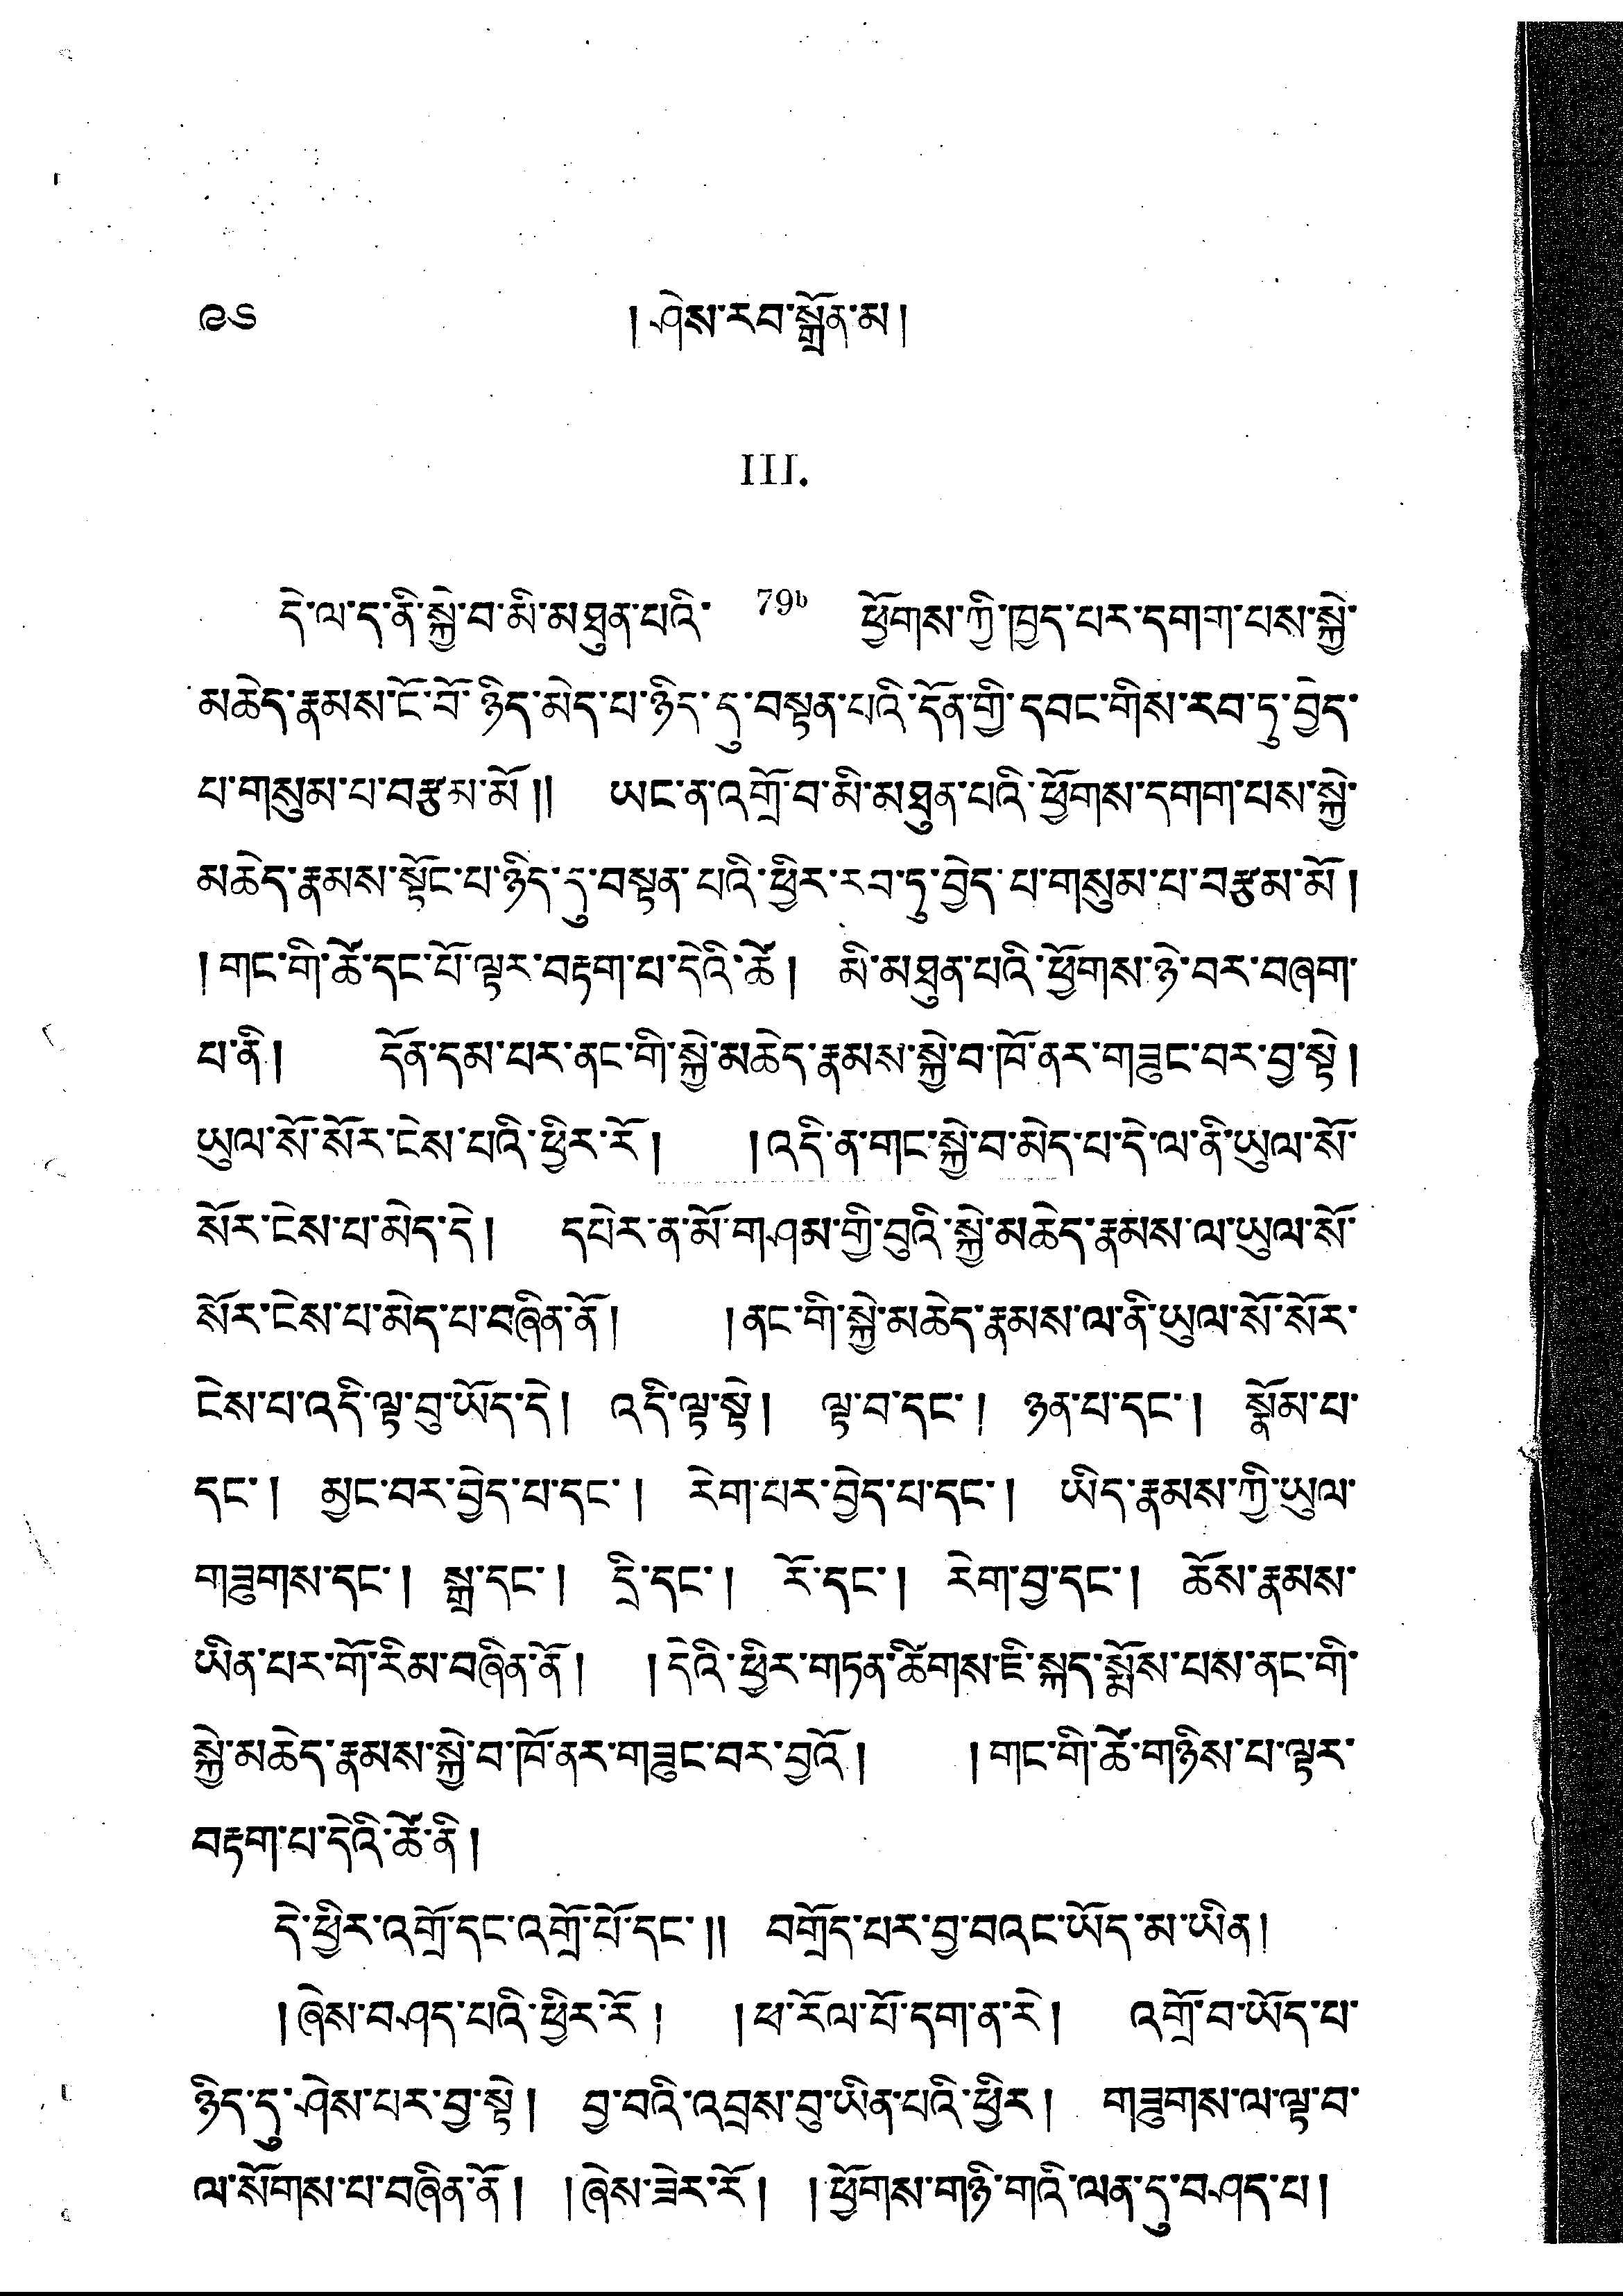 ༩༤ ། ཤེས་རབ་སྒྲོན་མ །
III.
དེ་ལ་ད་ནི་སྐྱེ་བ་མི་མཐུན་པའི་ 79b ཕྱོགས་ཀྱི་ཁྱད་པར་དགག་པས་སྐྱེ་
མཆེད་རྣམས་ངོ་བོ་ཉིད་མེད་པ་ཉིད་དུ་བསྟན་པའི་དོན་གྱི་དབང་གིས་རབ་ཏུ་བྱེད་
པ་གསུམ་པ་བརྩམ་མོ །། ཡང་ན་འགྲོ་བ་མི་མཐུན་པའི་ཕྱོགས་དགག་པས་སྐྱེ་
མཆེད་རྣམས་སྟོང་པ་ཉིད་དུ་བསྟན་པའི་ཕྱིར་རབ་ཏུ་བྱེད་པ་གསུམ་པ་བརྩམ་མོ །
། གང་གི་ཚེ་དང་པོ་ལྟར་བརྟག་པ་དེའི་ཚེ། མི་མཐུན་པའི་ཕྱོགས་ཉེ་བར་བཞག་
པ་ནི། དོན་དམ་པར་ནང་གི་སྐྱེ་མཆེད་རྣམས་སྐྱེ་བ་ཁོ་ནར་གཟུང་བར་བྱ་སྟེ །
ཡུལ་སོ་སོར་ངེས་པའི་ཕྱིར་རོ । །འདི་ན་གང་སྐྱེ་བ་མེད་པ་དེ་ལ་ནི་ཡུལ་སོ་
སོར་ངེས་པ་མེད་དེ། དཔེར་ན་མོ་གཤམ་གྱི་བུའི་སྐྱེ་མཆེད་རྣམས་ལ་ཡུལ་སོ་
སོར་ངེས་པ་མེད་པ་བཞིན་ནོ། །ནང་གི་སྐྱེ་མཆེད་རྣམས་ལ་ནི་ཡུལ་སོ་སོར་
ངེས་པ་འདི་ལྟ་བུ་ཡོད་དེ། འདི་ལྟ་སྟེ། ལྟ་བ་དང་། ཉན་པ་དང་། སྣོམ་པ་
དང་། མྱང་བར་བྱེད་པ་དང་། རེག་པར་བྱེད་པ་དང་། ཡིད་རྣམས་ཀྱི་ཡུལ་
གཟུགས་དང་། སྒྲ་དང་། དྲི་དང་། རོ་དང་། རེག་བྱ་དང་། ཆོས་རྣམས་
ཡིན་པར་གོ་རིམ་བཞིན་ནོ། །དེའི་ཕྱིར་གཏན་ཚིགས་ཇི་སྐད་སྨོས་པས་ནང་གི་
སྐྱེ་མཆེད་རྣམས་སྐྱེ་བ་ཁོ་ནར་གཟུང་བར་བྱའོ། །གང་གི་ཚེ་གཉིས་པ་ལྟར་
བརྟག་པ་དེའི་ཚེ་ནི།
དེ་ཕྱིར་འགྲོ་དང་འགྲོ་པོ་དང་།། བགྲོད་པར་བྱ་བའང་ཡོད་མ་ཡིན།
།ཞེས་བཤད་པའི་ཕྱིར་རོ། །ཕ་རོལ་པོ་དག་ན་རེ། འགྲོ་བ་ཡོད་པ་
ཉིད་དུ་ཤེས་པར་བྱ་སྟེ། བྱ་བའི་འབྲས་བུ་ཡིན་པའི་ཕྱིར། གཟུགས་ལ་ལྟ་བ་
ལ་སོགས་པ་བཞིན་ནོ། །ཞེས་ཟེར་རོ། །ཕྱོགས་གཉི་གའི་ལན་དུ་བཤད་པ།